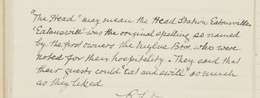 "The Head" may mean the Head Station Eatonsville
"Eatonsvill" was the original spelling as named
by the first owners the Bros. who were
noted for their hospitality. They said that
their guests could "eat and swill" as much
as they liked.